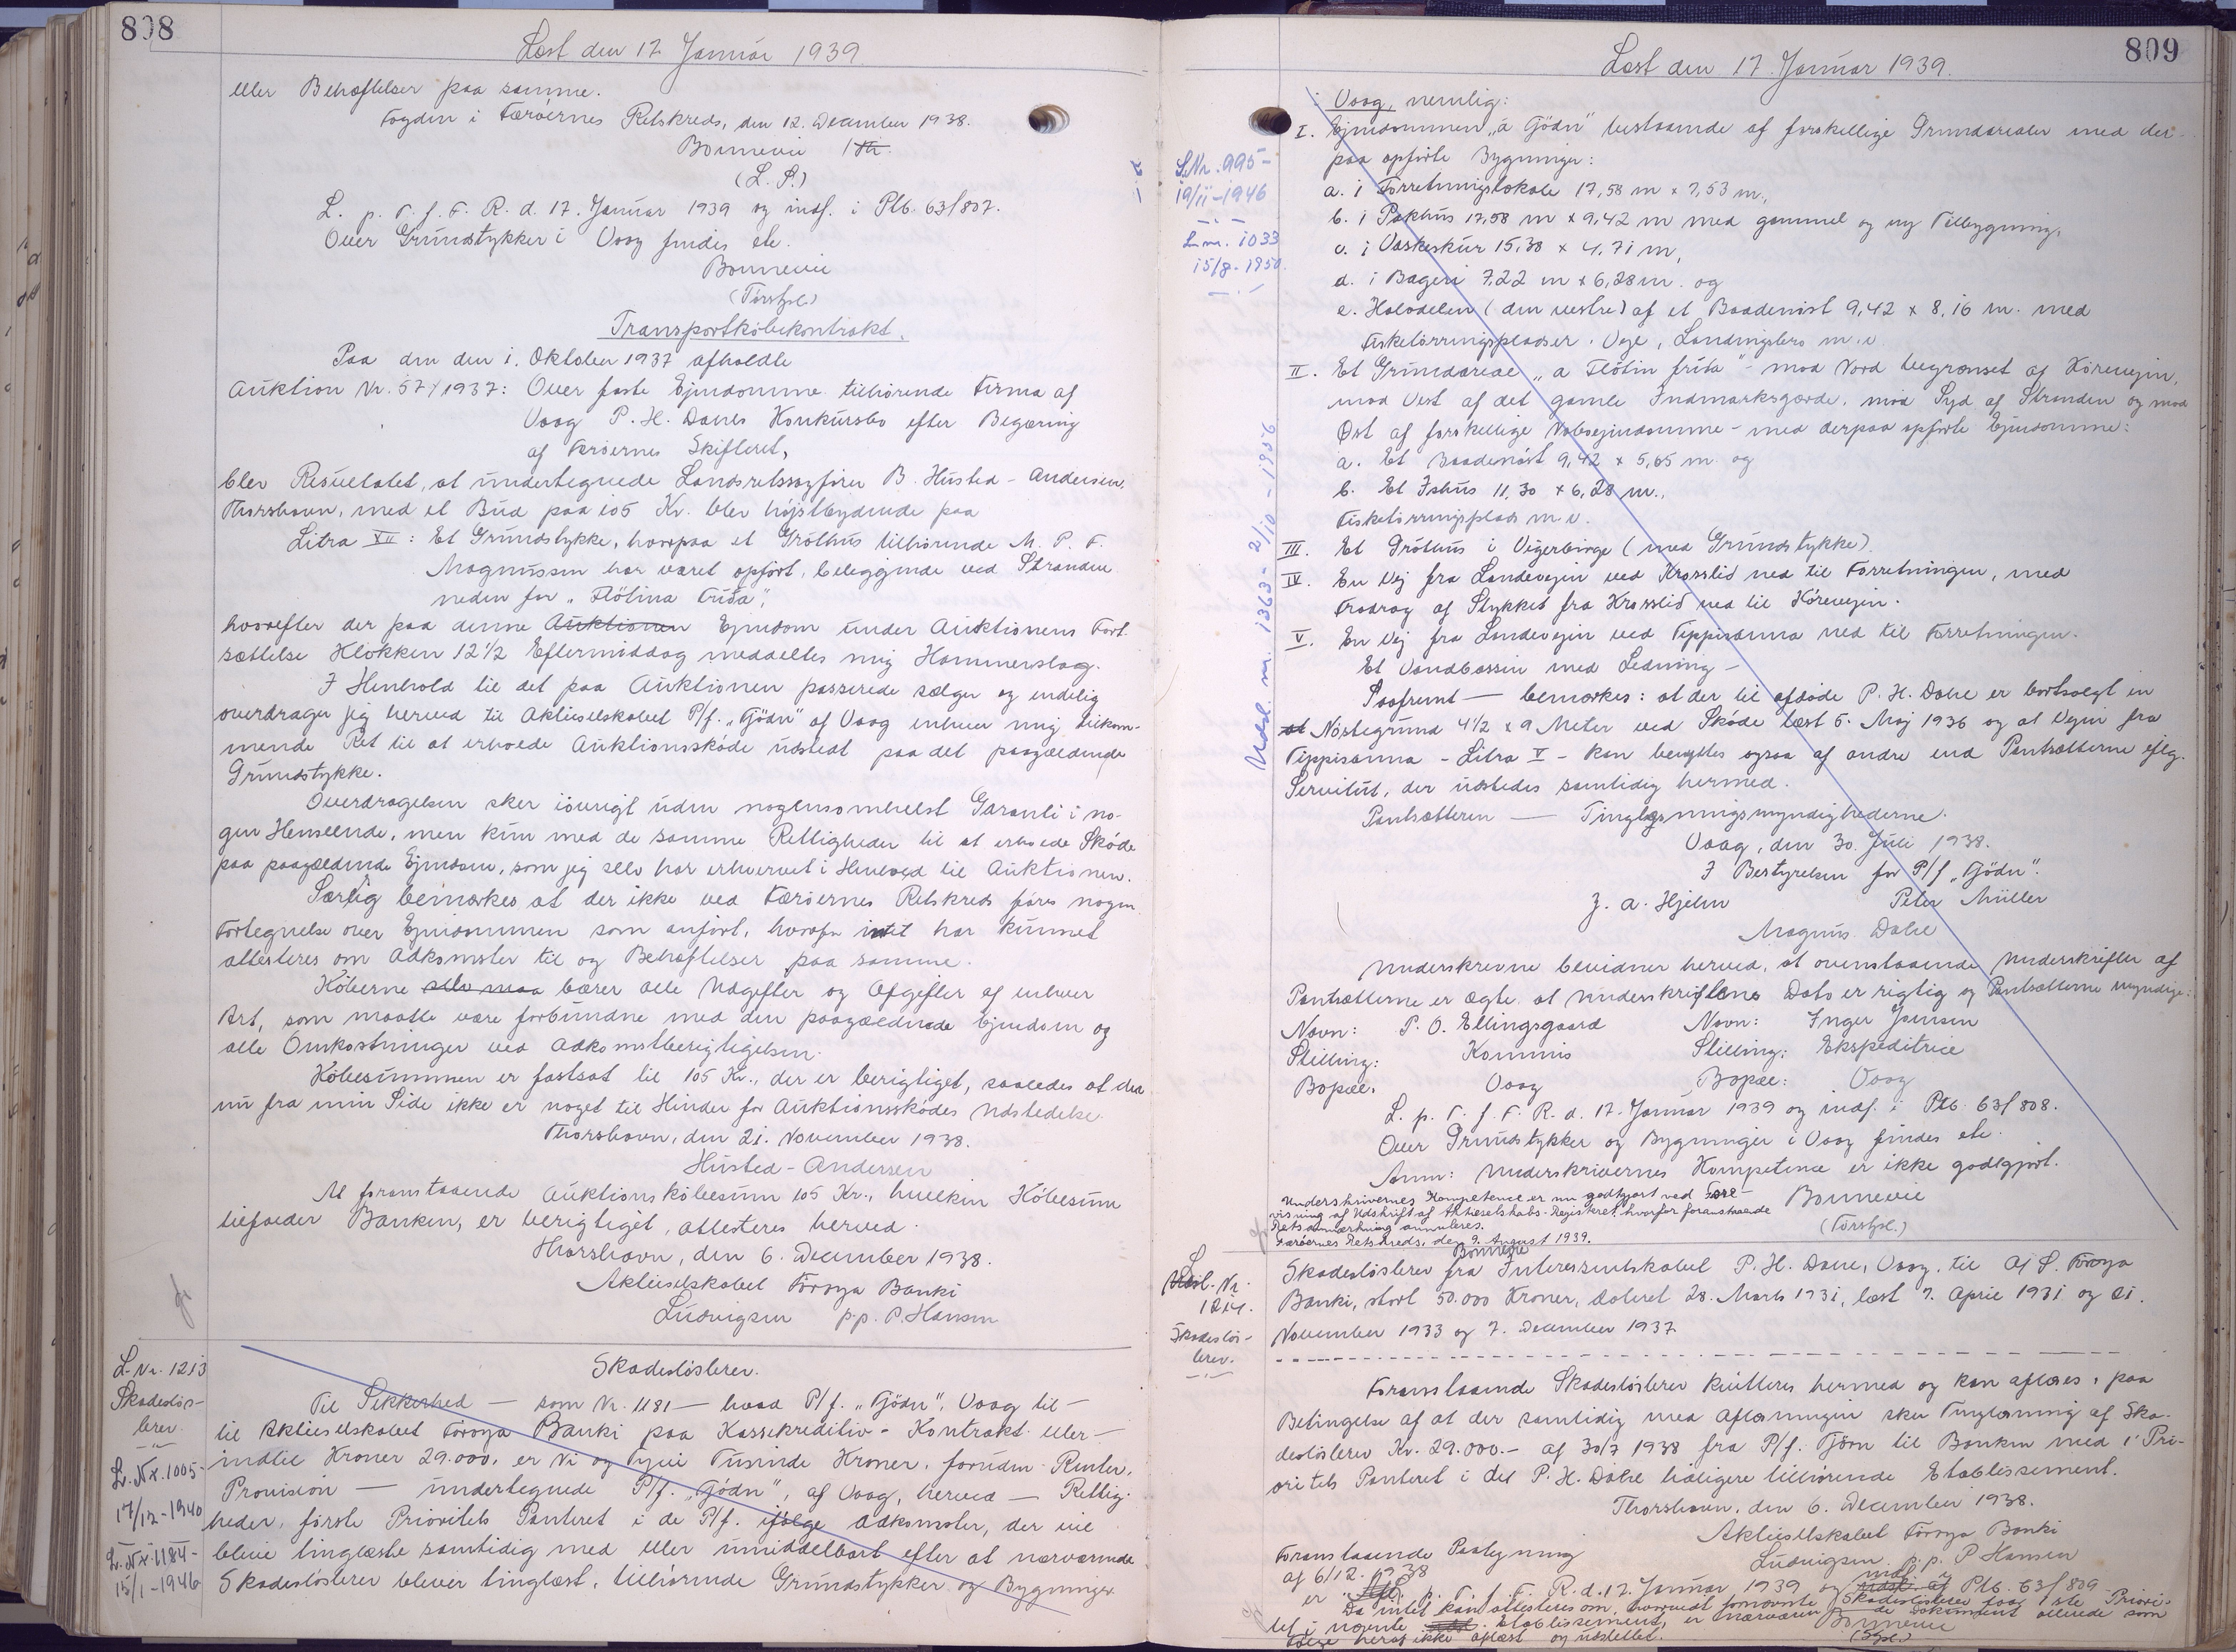 808
Læst den 17. Januar 1939
eller Behæftelser paa samme.
Fogden i Færöernes Retskreds, den 12. December 1938.
Bonnevie
(L. S.)
L. p. T. f. F. R. d. 17. Januar 1939 og indf. i Ptb. 63/807.
Over Grundstykker i Vaag findes etc.
Bonnevie
(Forstfm.)
Transportköbekontrakt.
Paa den den 1. Oktober 1937 afholdte
Auktion Nr. 57/1937: Over faste Ejendomme tilhörende Firma af
Vaag P. H. Dahls Konkursbo efter Begæring
af Færöernes Skifteret,
blev Resultatet, at undertegnede Landsretssagförer B. Husted-Andersen,
Thorshavn, med et Bud paa 105 Kr. blev höjstbydende paa
Litra XII: Et Grundstykke, hvorpaa et Gróthús tilhörende M. P. F.
Magnussen har været opfört, beliggende ved Stranden
neden for "Flötina Fríða",
hvorefter der paa denne Auktionen Ejendom under Auktionens Fort-
sættelse Klokken 12½ Eftermiddag meddeltes mig Hammerslag.
I Henhold til det paa Auktionen passerede sælger og endelig
overdrager jeg herved til Aktieselskabet P/f. "Tjödn" af Vaag enhver mig tilkom-
mende Ret til at erholde Auktionsskóde udstedt paa det paagældende
Grundstykke.
Overdragelsen sker iövrigt uden nogensomhelst Garanti i no-
gen Henseende, men kun med de samme Rettigheder til at erholde Skóde
paa paagældende Ejendom, som jeg selv har erhvervet i Henhold til Auktionen.
Særlig bemærkes at der ikke ved Færöernes Retskreds föres nogen
Fortegnelse over Ejendommen som anfört, hvorfor intet har kunnet
attesteres om Adkomster til og Behæftelser paa samme.
Köberne selv maa bærer alle Udgifter og Afgifter af enhver
Art, som maatte være forbundne med den paagældende Ejendom og
alle Omkostninger ved Adkomstberigtigelsen.
Köbesummen er fastsat til 105 Kr., der er berigtiget, saaledes at der
nu fra min Side ikke er noget til Hinder for Auktionsskódes Udstedelse.
Thorshavn, den 21. November 1938.
Husted-Andersen
At foranstaaende Auktionsköbesum 105 Kr., hvilken Köbesum
tilfalder Banken, er berigtiget, attesteres herved.
Thorshavn, den 6. December 1938.
Aktieselskabet Föroya Banki
Ludvigsen p.p. P. Hansen
L. Nr. 1213
Skadeslös-
brev.
L. Nr. 1005-
17/12-1940
L. Nr. 1184-
15/1-1946
Skadeslösbrev.
Til Sikkerhed — som Nr. 1181 — hvad P/f. "Tjödn", Vaag til —
til Aktieselskabet Föroya Banki paa Kassekreditiv-Kontrakt eller —
indtil Kroner 29.000, er Ni og Tyve Tusinde Kroner, foruden Renter,
Provision — undertegnede P/f. "Tjödn", af Vaag, herved — Rettig-
heder, förste Prioritets Panteret i de P/f. ifölge Adkomster, der vil
blive tinglæste samtidig med eller umiddelbart efter at nærværende
Skadeslösbrev bliver tinglæst, tilhörende Grundstykker og Bygninger
809
Læst den 17. Januar 1939.
S. Nr. 995-
19/11-1946
L. nr. 1033
15/8-1950
Udsl. nr. 1363- 2/10-1956
i Vaag, nemlig:
I. Ejendommen "á Tjödn" bestaaende af forskellige Grundarealer med der-
paa opförte Bygninger:
a. 1 Forretningslokale 17,58 m x 7,53 m.,
b. 1 Pakhus 17,58 m x 9,42 m med gammel og ny Tilbygning,
c. 1 Vaskeskur 15,38 x 4,71 m,
d. 1 Bageri 7,22 m x 6,28 m. og
e. Halvdelen (den vestre) af et Baadenöst 9,42 x 8,16 m. med
Fisketörringspladser, Veje, Landingsbro m.v.
II. Et Grundareal "á Flötin fríða" - mod Nord begrænset af Körevejen,
mod Vest af det gamle Indmarksgærde, mod Syd af Stranden og mod
Øst af forskellige Naboejendomme - med derpaa opförte Ejendomme:
a. Et Baadenöst 9,42 x 5,65 m. og
b. Et Ishus 11,30 x 6,28 m.,
Fisketörringsplads m.v.
III. Et Gróthús i Vágerbirge (med Grundstykke).
IV. En Vej fra Landevejen ved Krosslid ned til Forretningen, med
Fradrag af Stykket fra Krosslid ned til Körevejen.
V. En Vej fra Landevejen ved Tippisanna ned til Forretningen.
Et Vandbassin med Ledning —
Saafremt — bemærkes: at der til afdöde P. H. Dahl er bortsolgt en
Nöstegrund 4½ x 9 Meter ved Skóde læst 5. Maj 1936 og at Vejen fra
Tippisanna - Litra V - kan benyttes ogsaa af andre end Pantsætterne iflg.
Servitut, der udstedes samtidig hermed.
Pantsætteren — Tinglæsningsmyndighederne.
Vaag, den 30. Juli 1938.
I Bestyrelsen for P/f "Tjödn".
J. A. Hjelm Peter Müller
Magnus Dahl
Underskrevne bevidner herved, at ovenstaaende Underskrifter af
Pantsætterne er ægte, at Underskriftens Dato er rigtig og Pantsætterne myndige:
Navn: P. O. Ellingsgaard Navn: Inger Joensen
Stilling: Kommis Stilling: Ekspeditrice
Bopæl: Vaag Bopæl: Vaag
L. p. T. f. F. R. d. 17. Januar 1939 og indf. i Ptb. 63/808.
Over Grundstykker og Bygninger i Vaag findes etc.
Anm: Underskrivernes Kompetence er ikke godtgjort.
Bonnevie
(Forstfm.)
Underskrivernes Kompetence er nu godtgjort ved Fore-
visning af Udskrift af Aktieselskabs-Registret, hvorfor foranstaaende
Retsanmærkning annulleres.
Færöernes Retskreds, den 9. August 1939.
Bonnevie
L. Nr.
1214.
Skadeslös-
brev.
Skadeslösbrev fra Interessentskabet P. H. Dahl, Vaag, til A/S. Föroya
Banki, stort 50.000 Kroner, dateret 28. Marts 1931, læst 7. April 1931 og 21.
November 1933 og 7. December 1937
Foranstaaende Skadeslösbrev kvitteres hermed og kan aflæses, paa
Betingelse af at der samtidig med Aflæsningen sker Tinglæsning af Ska-
deslösbrev Kr. 29.000.- af 30/7 1938 fra P/f. Tjörn til Banken med 1' Pri-
oritets Panteret i det P. H. Dahl tidligere tilhörende Etablissement.
Thorshavn, den 6. December 1938.
Aktieselskabet Föroya Banki
Ludvigsen p.p. P Hansen
Foranstaaende Paategning
af 6/12. 1938
er p. T. f. F. R. d. 17. Januar 1939 og indf. i Ptb. 63/809
Da intet kan attesteres om, hvorvidt fornævnte Skadeslösbrev faar 1ste Priori-
tet i nævnte Etablissement, er nærværende Dokument allerede som
Fölge heraf ikke aflæst og udslettet.
Bonnevie